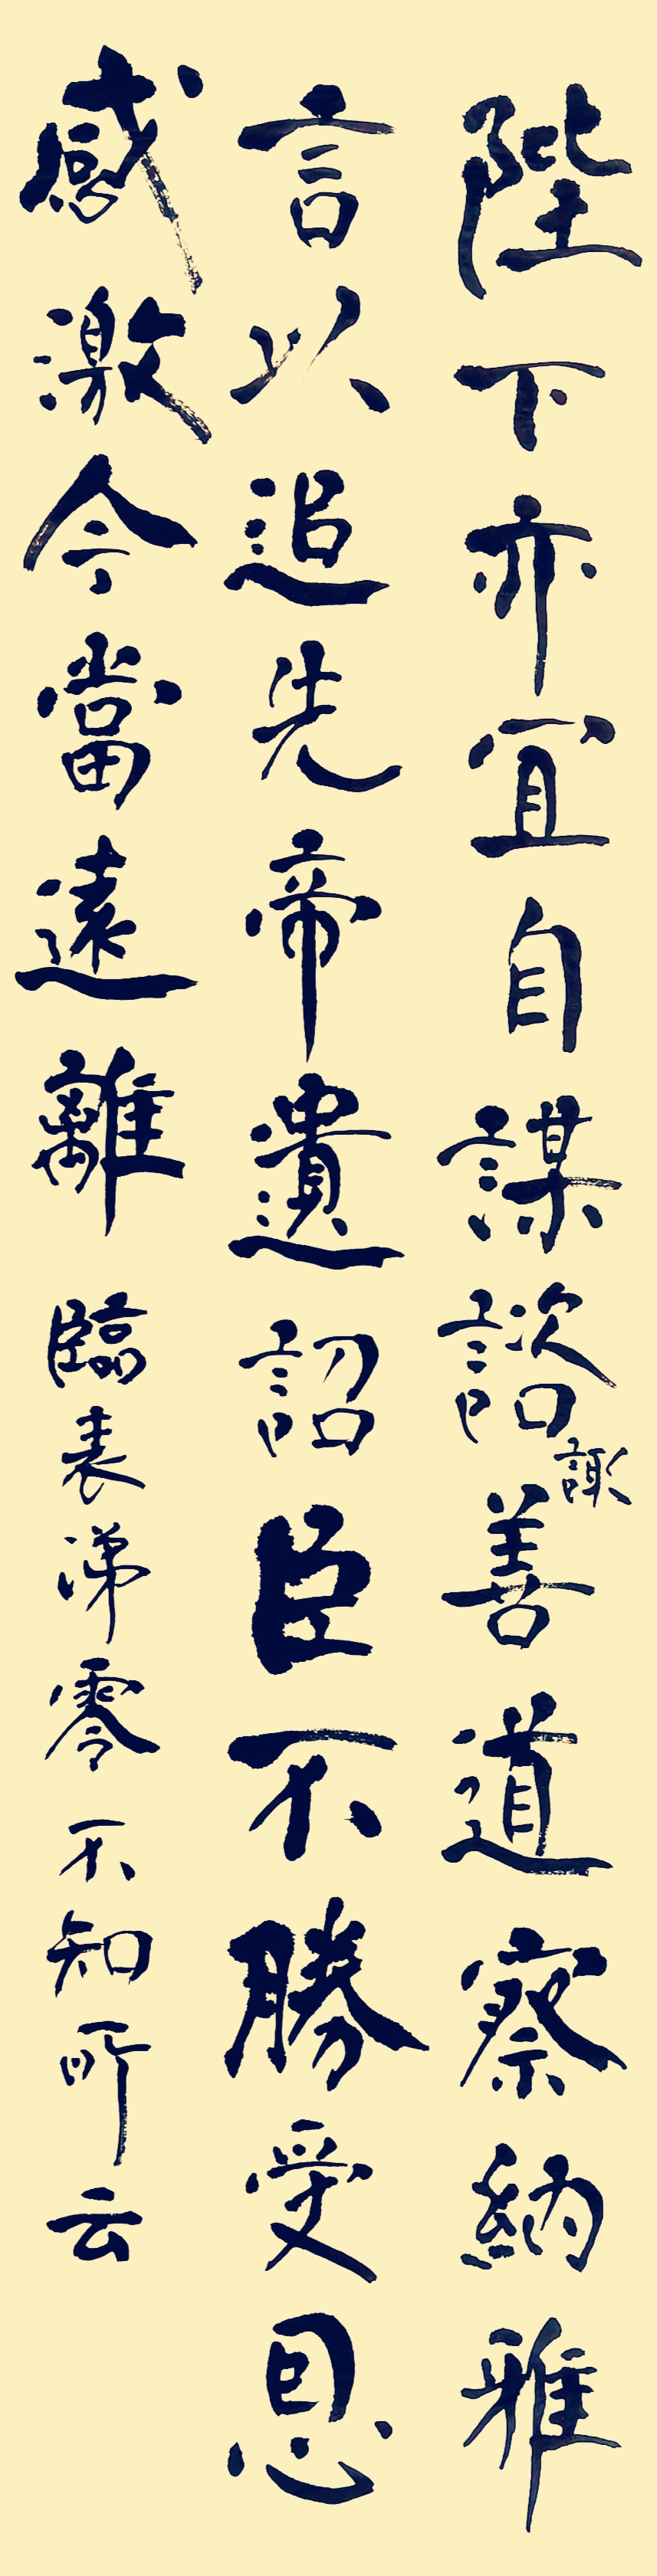 陛下亦宜自謀諮諏善道察納雅
言以追先帝遺詔臣不勝受恩
感激今當遠離臨表涕零不知所云